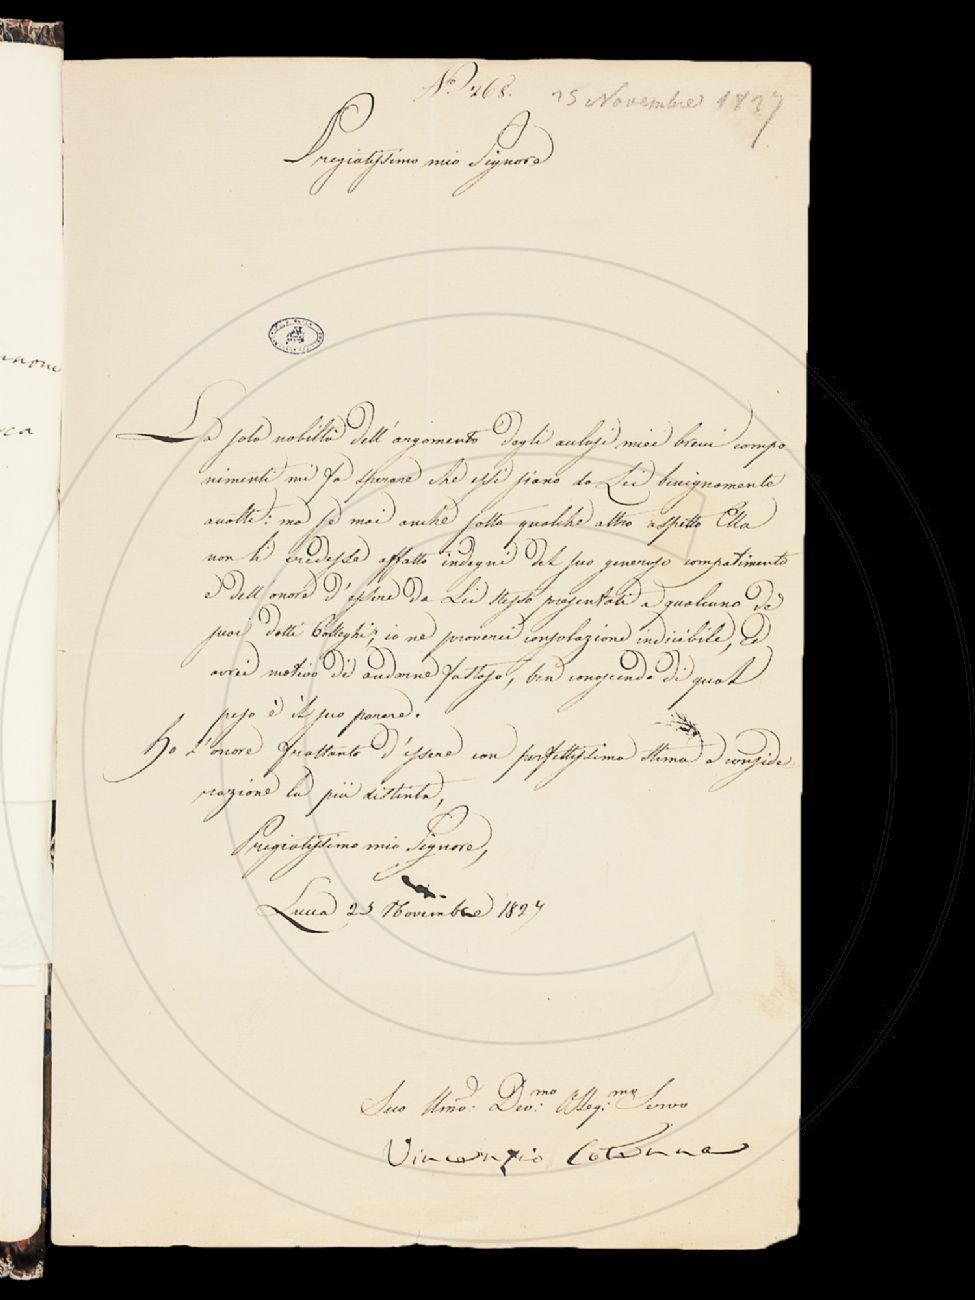 N.° 268.
25 Novembre 1827
Pregiatissimo mio Signore
La sola nobiltà dell'argomento degli acclusi miei brevi compo
nimenti mi fa sperare che essi siano da Lei benignamente
accolti: ma se mai anche sotto qualche altro aspetto Ella
non li credesse affatto indegni del suo generoso compatimento
e dell'onore d'essere da Lei stesso presentati a qualcuno de'
suoi dotti Colleghi, io ne proverei consolazione indicibile, ed
avrei motivo di andarne fastoso, ben conoscendo di qual
peso è il suo parere.
Ho l'onore frattanto d'essere con perfettissima stima e conside
razione la più distinta,
Pregiatissimo mio Signore,
Lucca 25 Novembre 1827
Suo Umo: Dev:mo Obbg:mo Servo
Vincenzio Cotenna